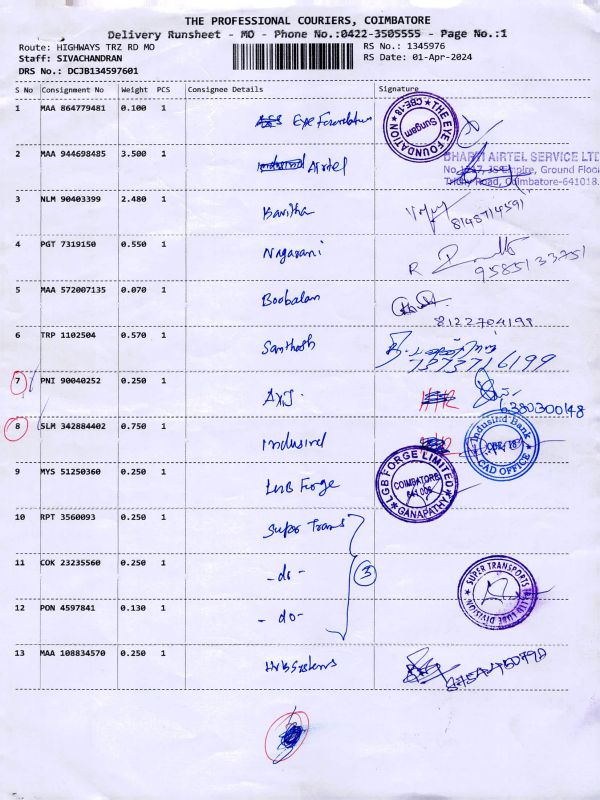 THE PROFESSIONAL COURIERS, COIMBATORE
Delivery Runsheet - MO - Phone No.:0422-3505555 - Page No.:1
Route: HIGHWAYS TRZ RD MO
RS No.: 1345976
Staff: SIVACHANDRAN
RS Date: 01-Apr-2024
DRS No.: DCJB134597601
S No Consignment No Weight PCS Consignee Details Signature
1 MAA 864779481 0.100 1 Eye Foundation
THE EYE FOUNDATION CBE-18 Sungam
2 MAA 944698485 3.500 1 Airtel
BHARTI AIRTEL SERVICE LTD
Empire, Ground Floor
Trichy Road, Coimbatore-641018.
3 NLM 90403399 2.480 1 Kavitha
8148714591
4 PGT 7319150 0.550 1 Nagarani
R
9585133751
5 MAA 572007135 0.070 1 Boobalan
8122704198
6 TRP 1102504 0.570 1 Santhosh
7373716199
7 PNI 90040252 0.250 1 Axis
6380300148
8 SLM 342884402 0.750 1 Indusind
Indusind Bank CBE-18 CAD OFFICE
9 MYS 51250360 0.250 1 LGB Forge
LGB FORGE LIMITED COIMBATORE 641 006 GANAPATHY
10 RPT 3560093 0.250 1 Super Trans
11 COK 23235560 0.250 1 -do-
3
SUPER TRANSPORTS LUBE DIVISION
12 PON 4597841 0.130 1 -do-
13 MAA 108834570 0.250 1